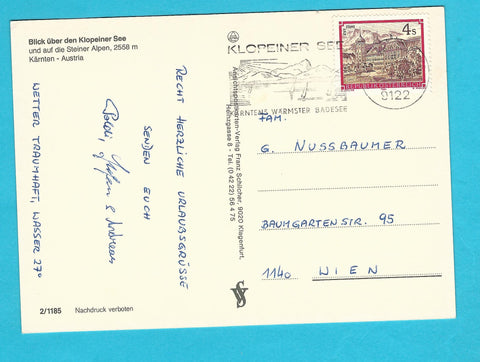 Blick über den Klopeiner See
und auf die Steiner Alpen, 2558 m
Kärnten - Austria
RECHT HERZLICHE URLAUBSGRÜSSE
SENDEN EUCH
& Andreas
WETTER TRAUMHAFT, WASSER 27°
2/1185 Nachdruck verboten
Ansichtspostkarten-Verlag Franz Schilcher, 9020 Klagenfurt,
KLOPEINER SEE
KÄRNTENS WÄRMSTER BADESEE
9122
4 S
REPUBLIK ÖSTERREICH
FAM.
G. NUSSBAUMER
BAUMGARTENSTR. 95
1140 WIEN